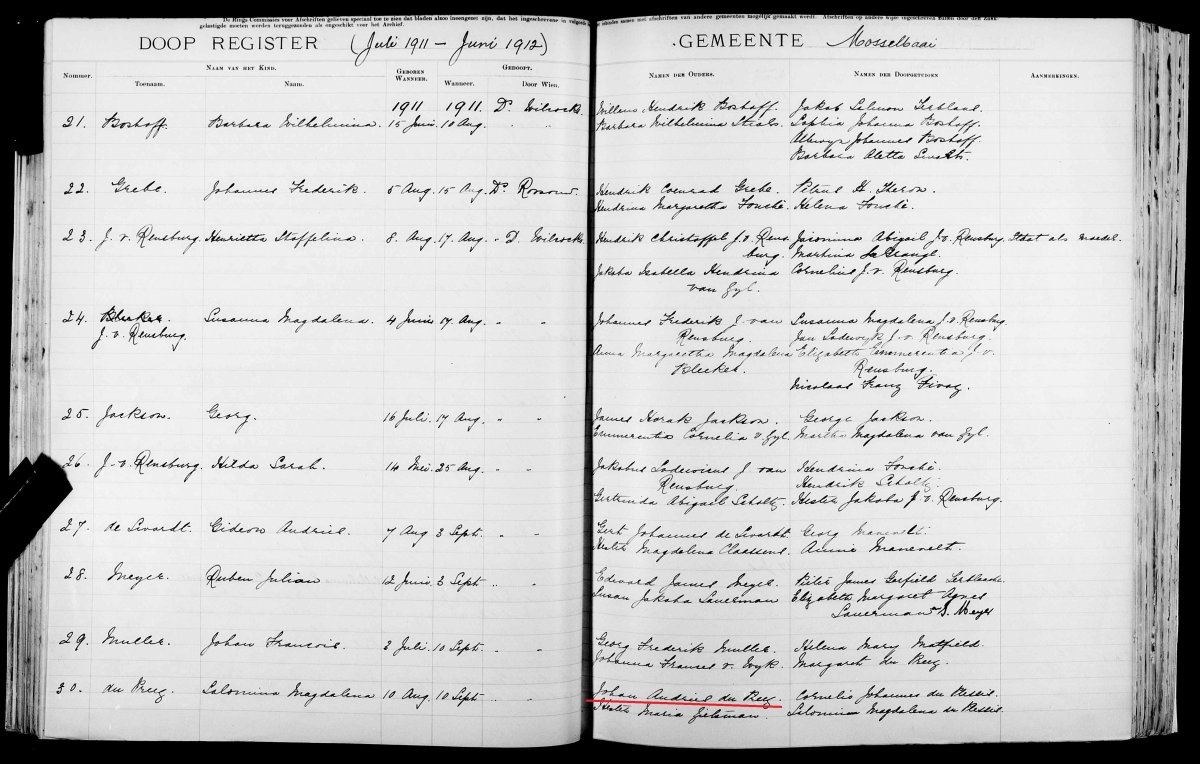 De Rings Commissies voor Afschriften gelieven speciaal toe te zien dat bladen alzoo ineengenet zijn, dat het ingeschrevene in
gelastigde moeten worden teruggezonden als ongeschikt voor het Archief.
DOOP REGISTER (Juli 1911 – Juni 1912)
Nommer.
NAAM VAN HET KIND.
Toenaam.
Naam.
GEBOREN WANNEER.
GEDOOPT.
Wanneer.
Door Wien.
1911 1911 Ds Wilcocks
21. Boshoff. Barbara Wilhelmina. 15 Juni 10 Aug. " "
22. Grebe. Johannes Frederik. 5 Aug. 15 Aug. Ds
23. J. v. Rensburg. Henrietta Stoffelina. 8 Aug. 17 Aug. " D. Wilcocks
24. Bleeker. Susanna Magdalena. 4 Junie 17 Aug. " "
J. v. Rensburg.
25. Jackson. Georg. 16 Juli 17 Aug. " "
26. J. v. Rensburg. Hilda Sarah. 14 Mei 25 Aug. " "
27. de Swardt. Gideon Andries. 7 Aug 3 Sept. " "
28. Meyer. Ruben Julian 12 Junie 3 Sept " "
29. Muller. Johan Francois. 2 Juli 10 Sept. " "
30. du Preez. Salomina Magdalena 10 Aug 10 Sept " "
samen met afschriften van andere gemeenten mogelijk gemaakt wordt. Afschriften op andere wijze ingeschreven zullen door den
GEMEENTE Mosselbaai
NAMEN DER OUDERS.
NAMEN DER DOOPGETUIGEN
AANMERKINGEN.
Willem Hendrik Boshoff. Jakob Salmon Terblans.
Barbara Wilhelmina Sophia Johanna Boshoff.
Johannes Boshoff.
Barbara Aletta
Hendrik Coenrad Grebe. Petrus H. Theron.
Hendrina Margaretha Fouché. Helena Fouché.
Hendrik Christoffel J. v. Rens Jeronima Abigail J. v. Rensburg. Staat als moeder.
burg. Martina La Grange.
Jakoba Isabella Hendrina Cornelius J. v. Rensburg.
van Zyl.
Johannes Frederik J. van Susanna Magdalena J. v. Rensburg
Rensburg. Jan Lodewyk J. v. Rensburg.
Anna Margaretha Magdalena Elizabeth Emmerentia J. v.
Bleeker. Rensburg.
Nicolaas Franz Fivaz
James Horak Jackson. George Jackson.
Emmerentia Cornelia v Zyl. Martha Magdalena van Zyl.
Jakobus Lodewicus J. van Hendrina Fouché.
Rensburg. Hendrik Scholtz.
Gertruida Abigail Scholtz. Hester Jakoba J. v. Rensburg.
Gert Johannes de Swardt. Georg Manevelt.
Hester Magdalena Claassens. Annie Manevelt.
Edward James Meyer. Pieter James Garfield Terblanche
Susan Jakoba Lauerman Elizabeth Margaret Agnes
Lauerman & Meyer
Georg Frederik Muller. Helena Mary Matfield.
Johanna Franses v. Wyk. Margaret du Preez.
Johan Andries du Preez. Cornelis Johannes du Plessis.
Hester Maria Zietsman. Salomina Magdalena du Plessis.